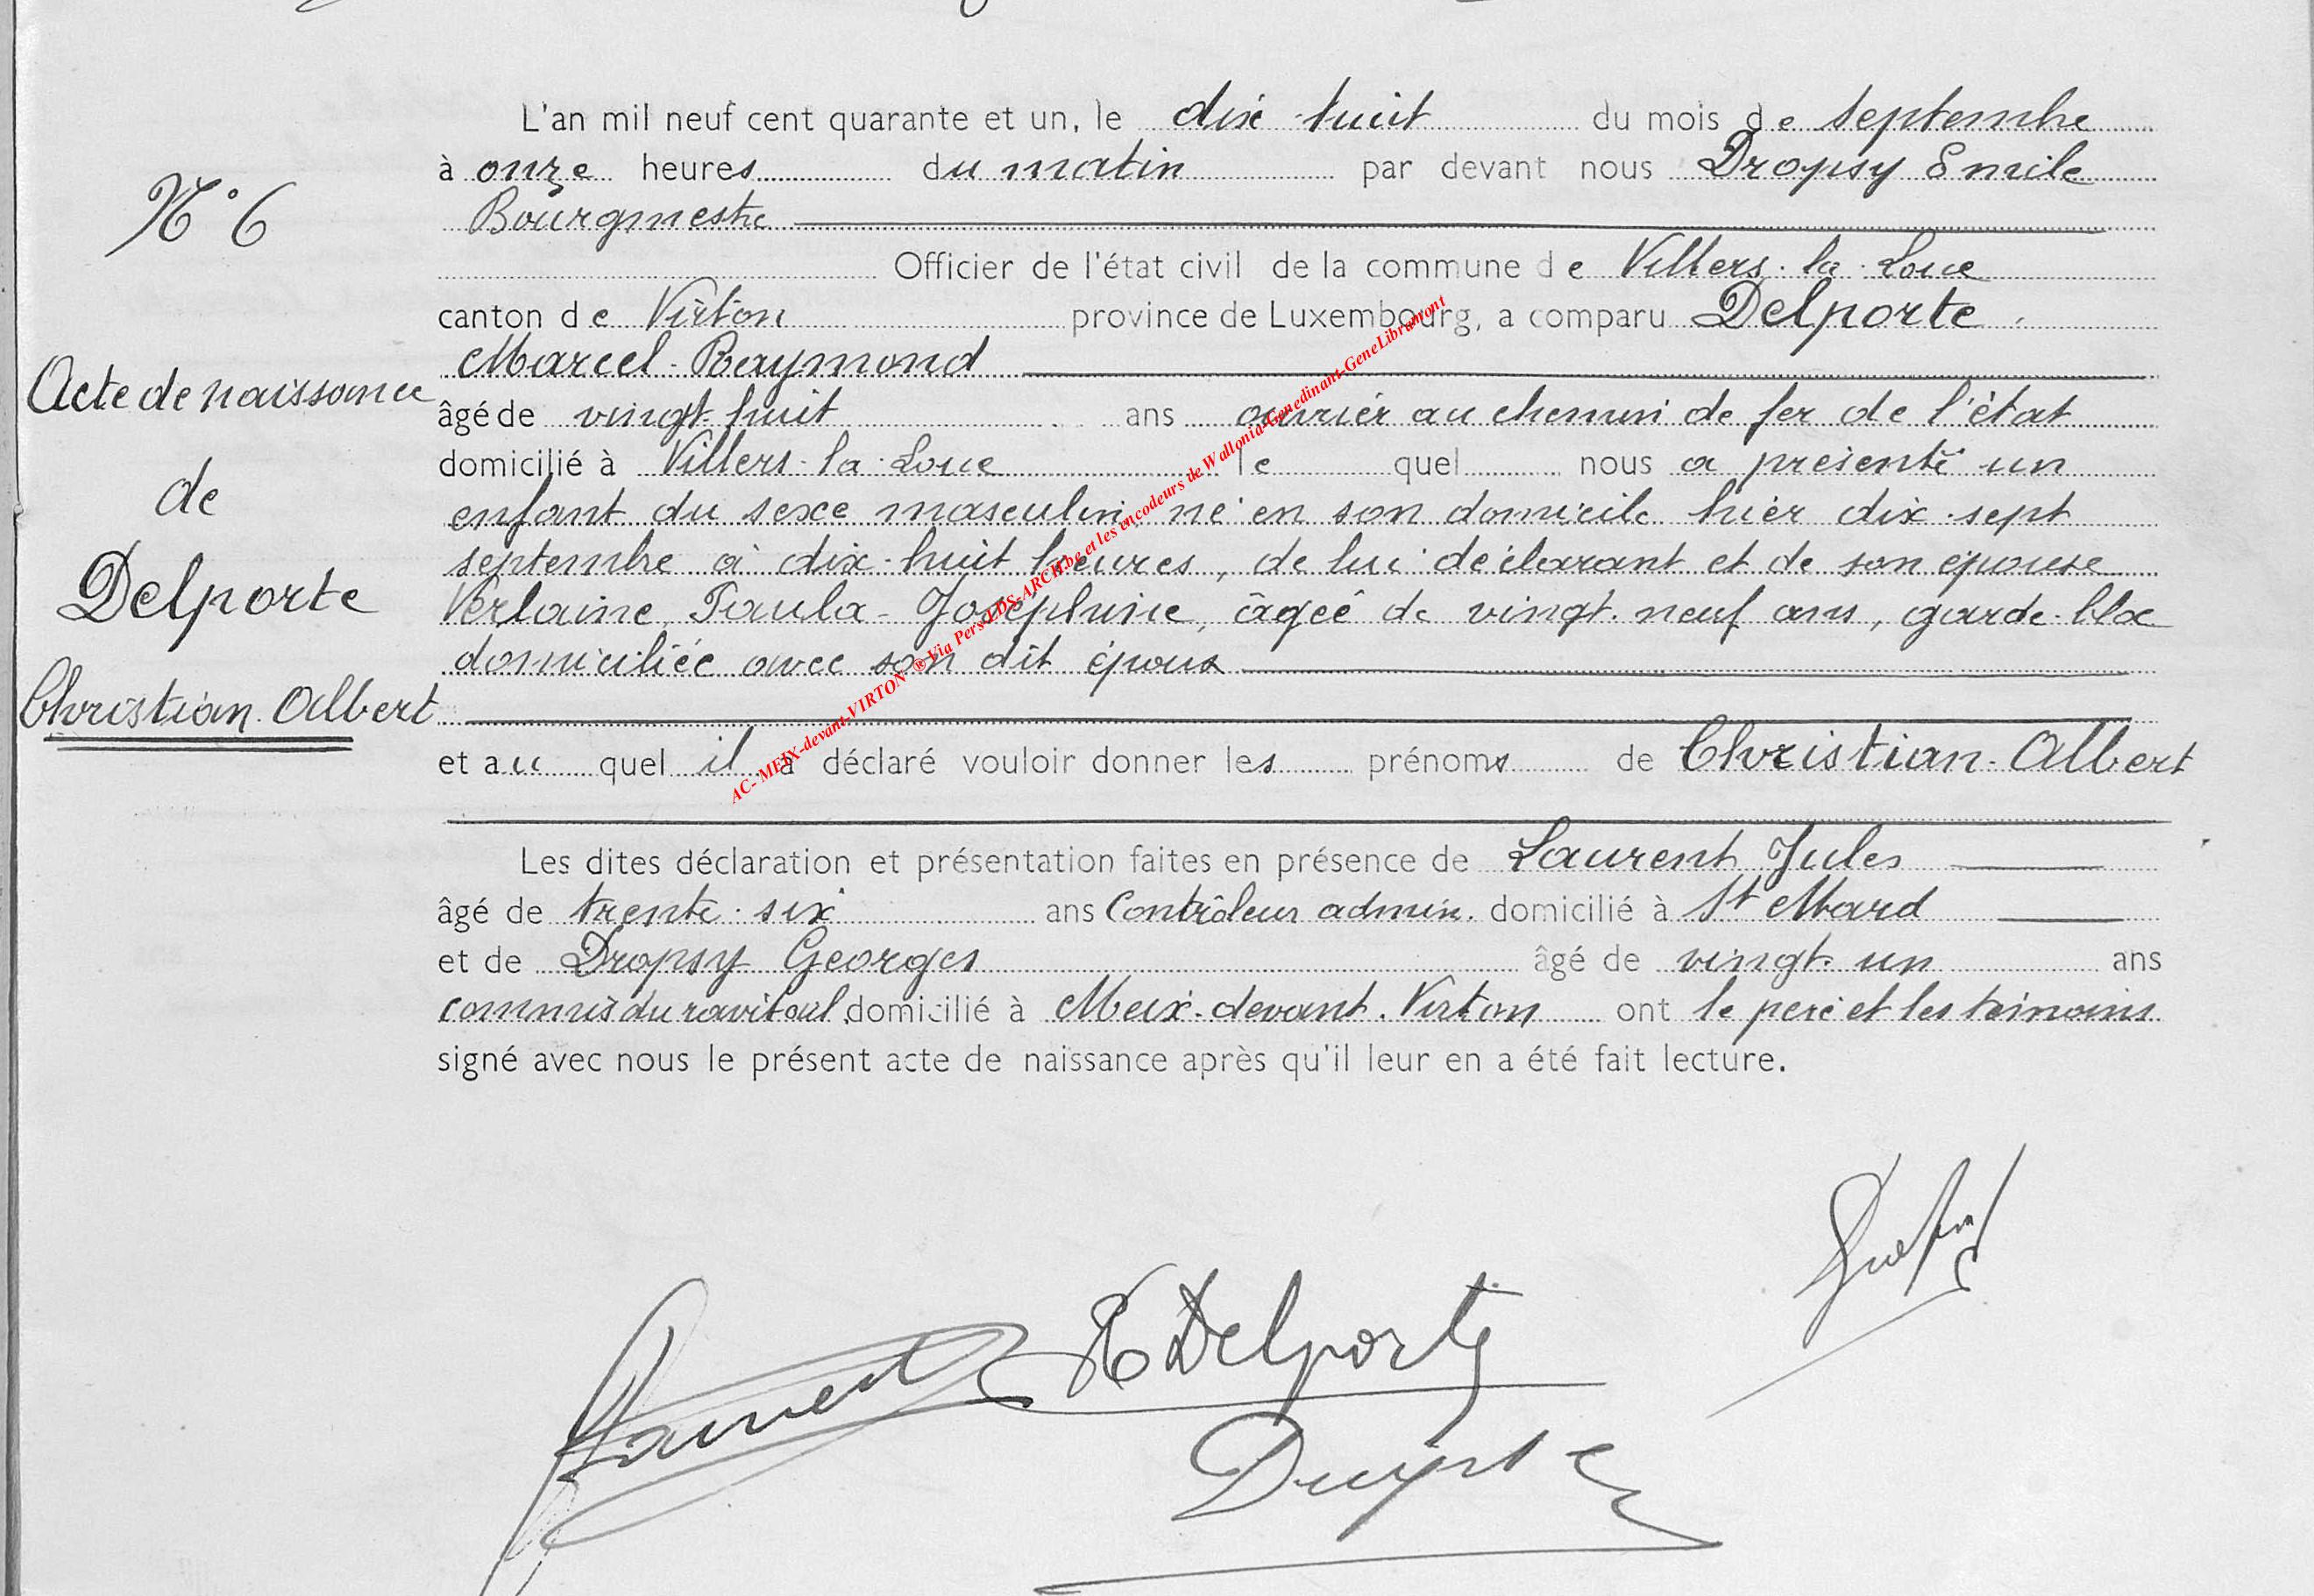 N° 6
Acte de naissance
de
Delporte
Christian Albert
L'an mil neuf cent quarante et un, le dix-huit du mois de septembre
à onze heures du matin par devant nous Dropsy Emile
Bourgmestre
Officier de l'état civil de la commune de Villers-la-Loue
canton de Virton province de Luxembourg, a comparu Delporte
Marcel-Raymond
âgé de vingt-huit ans ouvrier au chemin de fer de l'état
domicilié à Villers-la-Loue le quel nous a présenté un
enfant du sexe masculin, né en son domicile hier dix-sept
septembre à dix-huit heures, de lui déclarant et de son épouse
Verlaine, Paula-Joséphine, âgée de vingt-neuf ans, garde-blox
domiciliée avec son dit époux
et au quel il a déclaré vouloir donner les prénoms de Christian-Albert
Les dites déclaration et présentation faites en présence de Laurent Jules
âgé de trente-six ans Contrôleur admin. domicilié à St Mard
et de Dropsy Georges âgé de vingt-un ans
commis du ravitail. domicilié à Meix-devant-Virton ont le père et les témoins
signé avec nous le présent acte de naissance après qu'il leur en a été fait lecture.
AC- MEIX-devant-VIRTON ® Via Pers-LDS-ARCH.be et les encodeurs de Wallonia-Genedinant-GeneLibramont
Laurent
Delporte